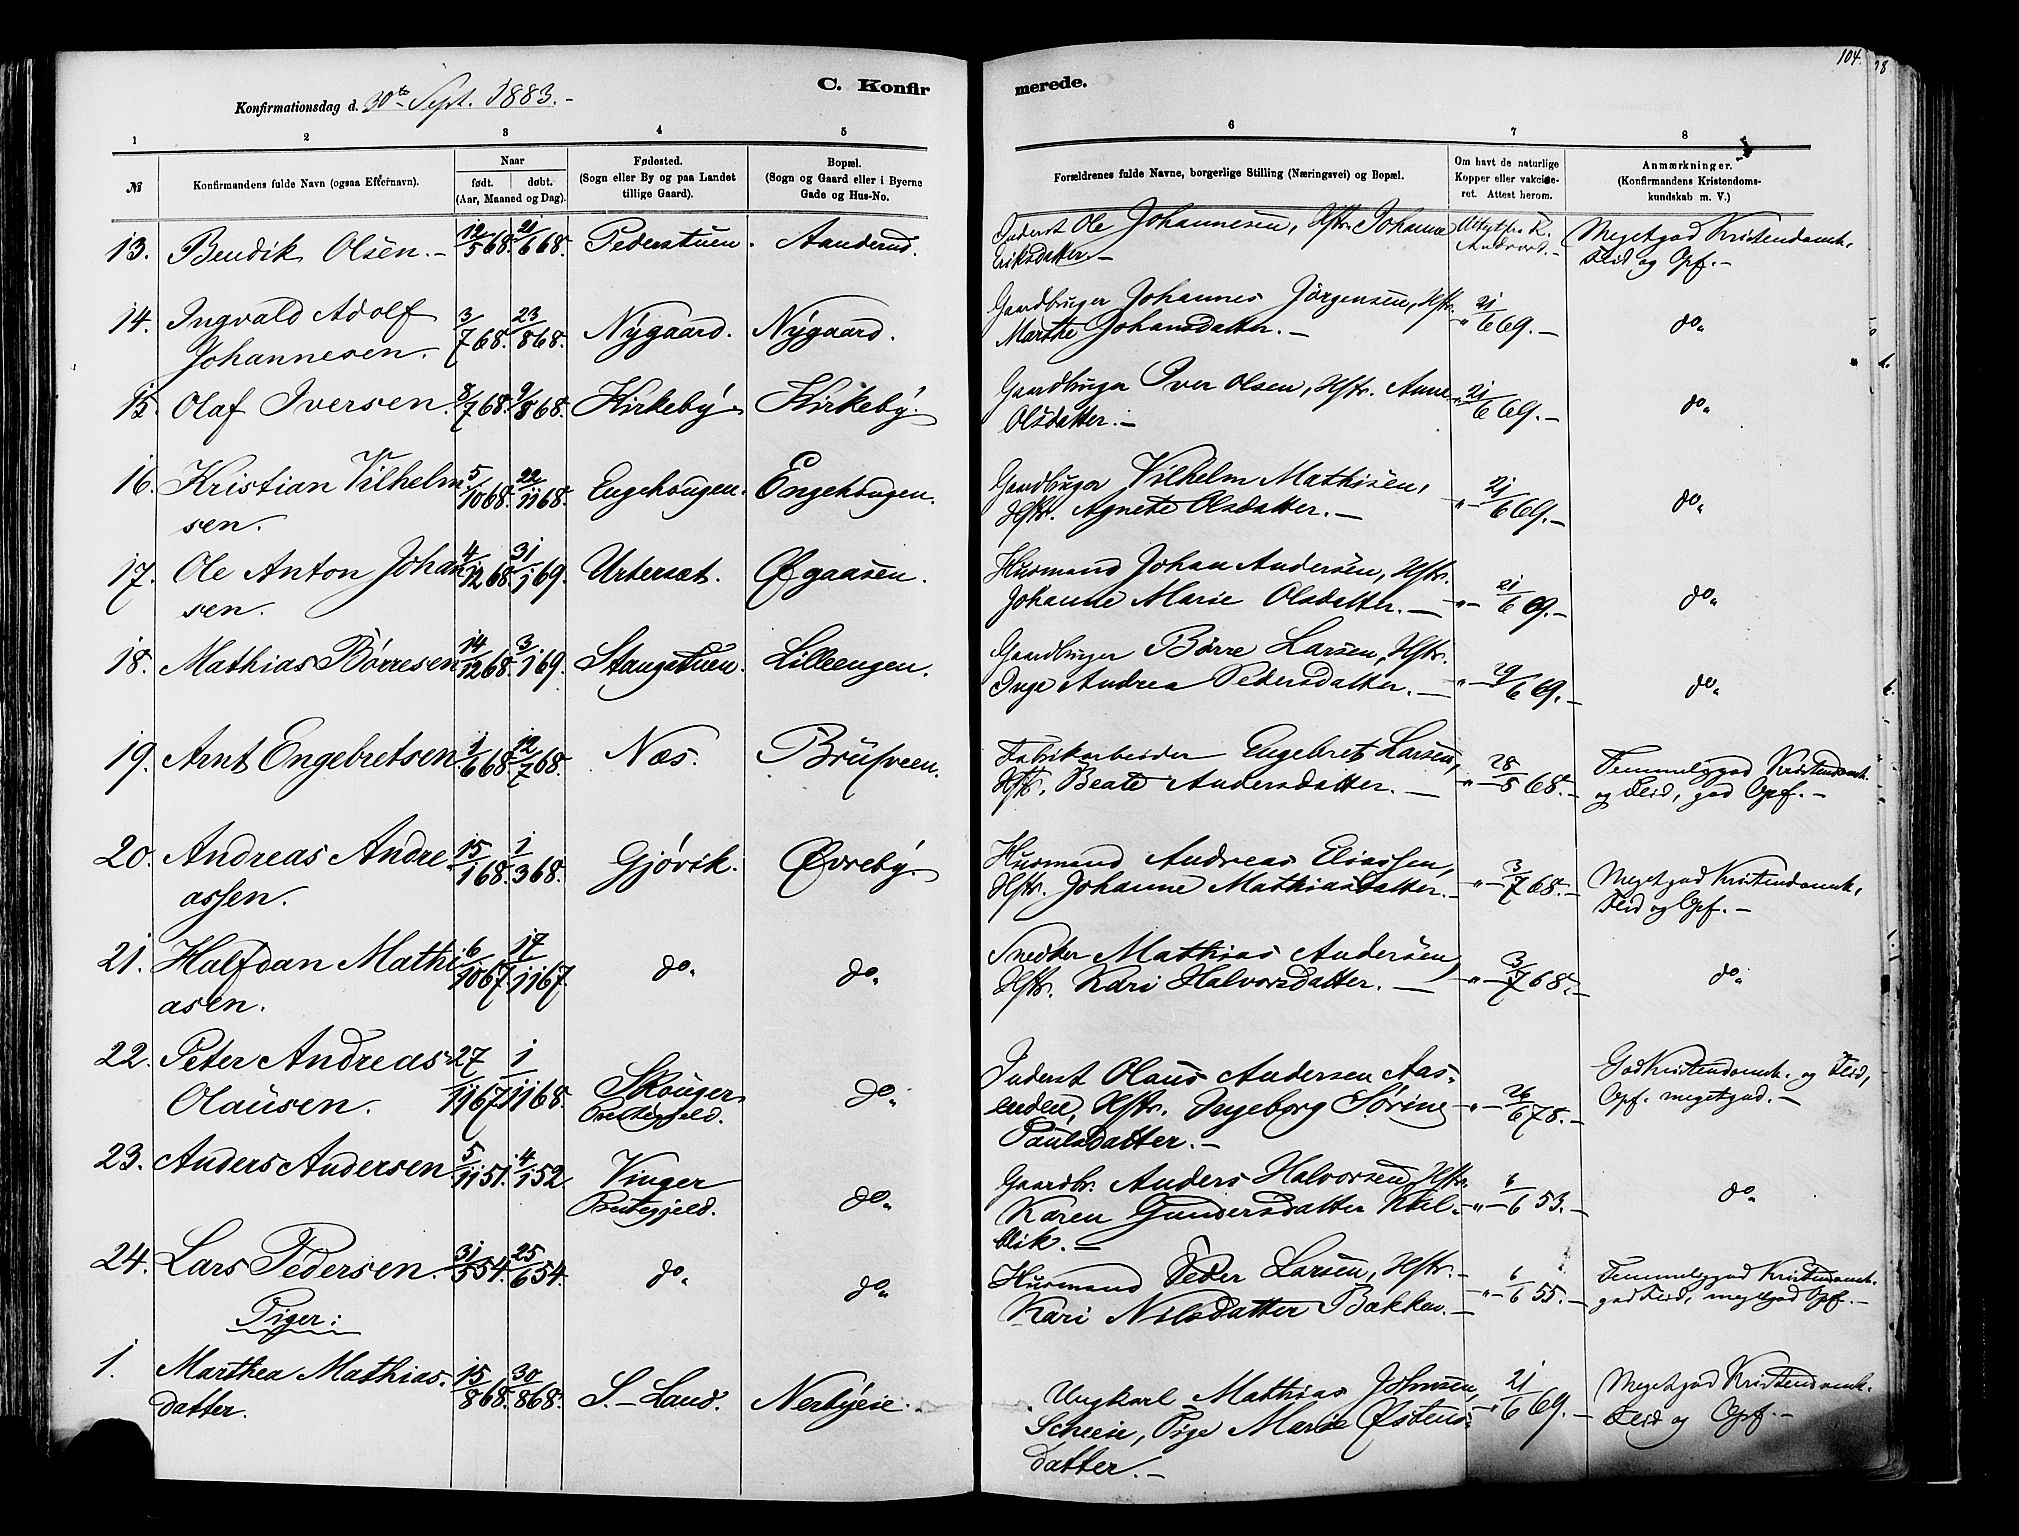 104.
C. Konfir
merede.
Konfirmationsdag d. 30te Sept. 1883.-
1 2 3 4 5 6 7 8
№ Konfirmandens fulde Navn (ogsaa Efternavn).
Naar
født. døbt.
(Aar, Maaned og Dag).
Fødested.
(Sogn eller By og paa Landet
tillige Gaard).
Bopæl.
(Sogn og Gaard eller i Byerne
Gade og Hus-No.
Forældrenes fulde Navne, borgerlige Stilling (Næringsvei) og Bopæl.
Om havt de naturlige
Kopper eller vakcine-
ret. Attest herom.
Anmærkninger.
(Konfirmandens Kristendoms-
kundskab m. V.)
13. Bendik Olsen.- 12/5 68. 21/6 68. Pederstuen. Aanderud.
Inderst Ole Johannesen, Hstr. Johanne
Eriksdatter.-
Megetgod Kristendomsk,
Flid og Opf.-
14. Ingvald Adolf 3/7 68. 23/8 68. Nygaard. Nygaard.
Johannesen.
Gaardbruger Johannes Jørgensen, Hstr.
Marthe Johansdatter.- "- 21/6 69.- do"
15. Olaf Iversen. 8/7 68. 9/8 68. Kirkeby Kirkeby.
Gaardbruger Iver Olsen, Hstr. Anne
Olsdatter.- "- 21/6 69.- do"
16. Kristian Vilhelm 5/10 68. 22/11 68. Engehougen. Engehougen.
sen.
Gaardbruger Vilhelm Mathisen,
Hstr. Agnete Olsdatter.- "- 21/6 69.- do"
17. Ole Anton Johan 4/12 68. 31/1 69. Urtersæt. Øfgaasen.
sen.
Husmand Johan Andersen, Hstr.
Johanne Marie Olsdatter.- "- 21/6 69.- do"
18. Mathias Børresen 14/12 68. 3/1 69. Stangstuen. Lilleengen.
Gaardbruger Børre Larsen, Hstr.
Inge Andrea Pedersdatter.- "- 29/6 69.- do"
19. Arnt Engebretsen 1/6 68. 12/7 68. Næs. Brufveen.
Fabrikarbeider Engebret Larsen,
Hstr. Beate Andersdatter.- "- 28/8 68.-
Temmeliggod Kristendomsk.
og Flid, god Opf.-
20. Andreas Andre 15/1 68. 1/3 68. Gjøvik. Øvreby.
assen.
Husmand Andreas Eliassen,
Hstr. Johanne Mathiasdatter.- "- 3/7 68.-
Megetgod Kristendomsk,
Flid og Opf.-
21. Halfdan Mathi 6/10 67. 17/11 67. do" do"
asen.
Snedker Mathias Andersen,
Hstr. Kari Halvorsdatter.- "- 3/7 68.- do"
22. Peter Andreas 27/11 67. 1/1 68. Skouger do"
Olausen. Præstegjeld.
Inderst Olaus Andersen Aas-
enden, Hstr. Ingeborg Sørine "- 26/6 78.-
Paulsdatter.-
God Kristendomsk. og Flid,
Opf. megetgod.-
23. Anders Andersen 5/11 51. 4/1 52. Vinger do"
Præstegjeld.
Gaardbr. Anders Halvorsen, Hstr.
Karen Gundersdatter Kbil- "- 6/6 53.- do"
blik.-
24. Lars Pedersen. 31/5 54. 25/6 54. do" do"
Husmand Peder Larsen, Hstr.-
Kari Nilsdatter Bakken.- "- 6/6 55.-
Temmeliggod Kristendomsk.
god Flid, megetgod Opf.-
Piger:
1. Marthea Mathias- 15/8 68. 30/8 68. S.-Land. Nerbyeie.
datter.
Ungkarl Mathias Johnsen,
Scheeie, Pige Marie Østens-
datter.- "- 21/6 69.-
Megetgod Kristendomsk.
Flid og Opf.-